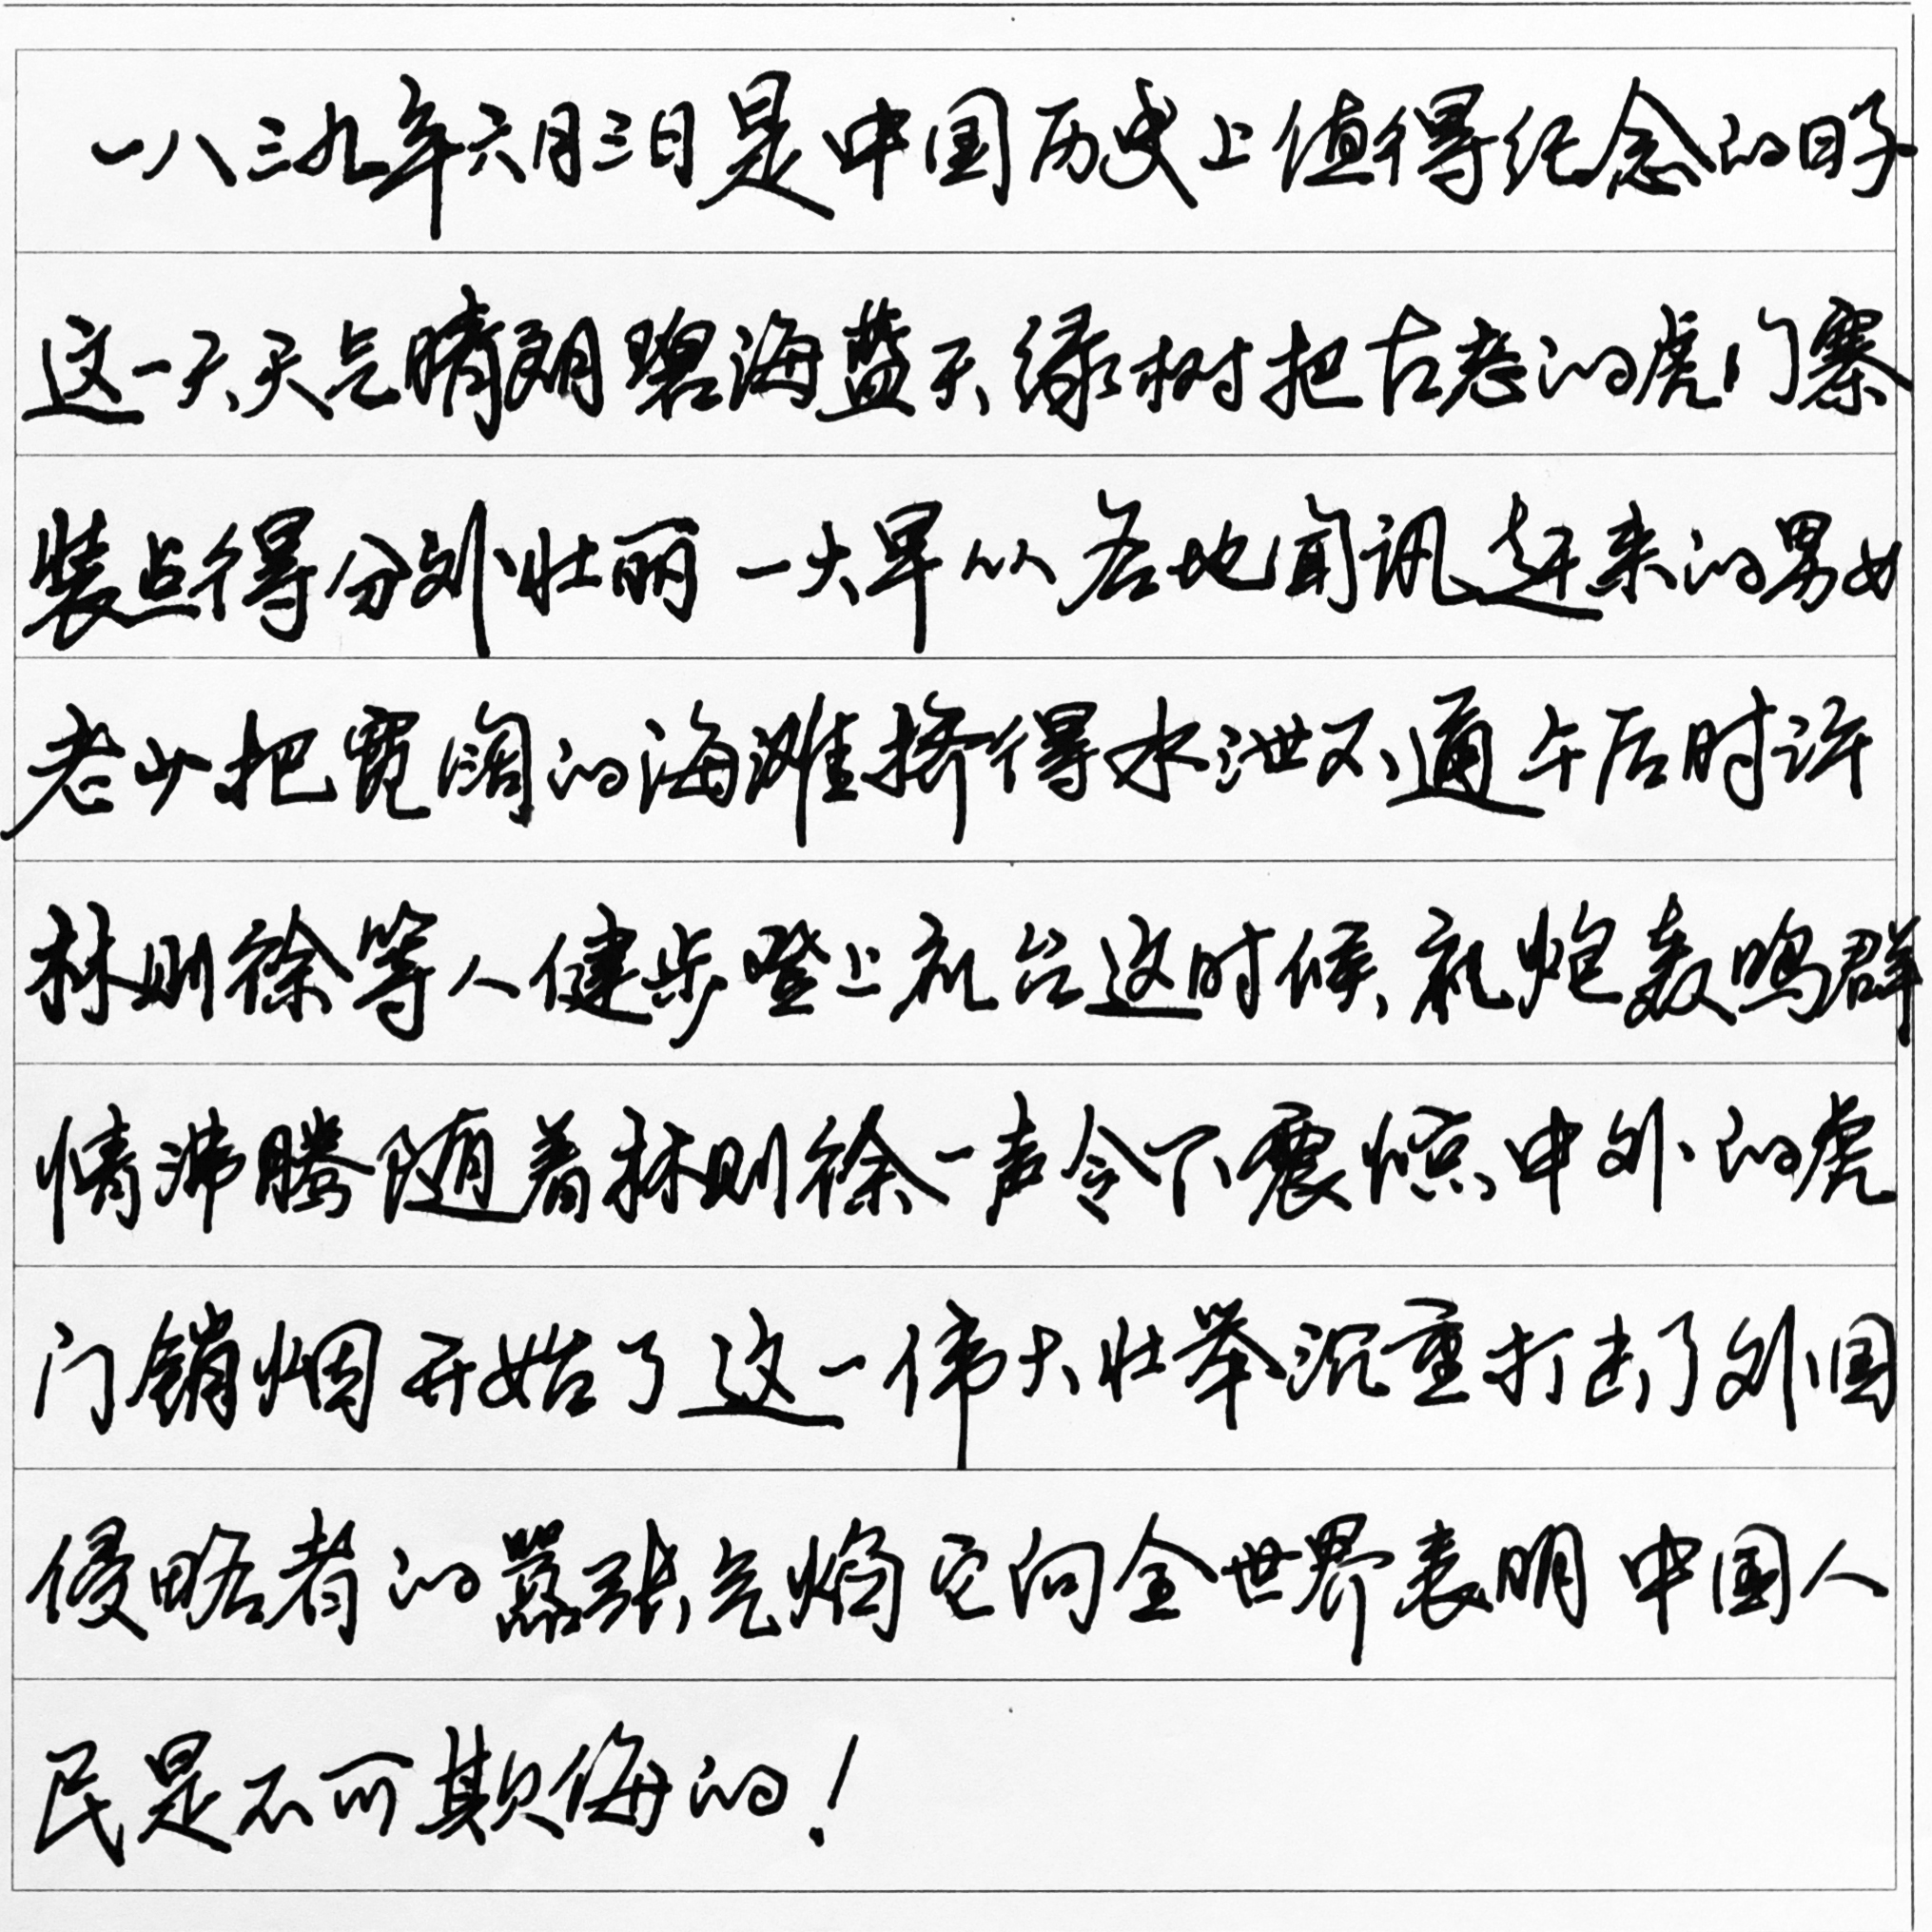 一八三九年六月三日是中国历史上值得纪念的日子
这一天天气晴朗碧海蓝天绿树把古老的虎门寨
装点得分外壮丽一大早从各地闻讯赶来的男女
老少把宽阔的海滩挤得水泄不通午后时许
林则徐等人健步登上礼台这时候礼炮轰鸣群
情沸腾随着林则徐一声令下震惊中外的虎
门销烟开始了这一伟大壮举沉重打击了外国
侵略者的嚣张气焰它向全世界表明中国人
民是不可欺侮的！